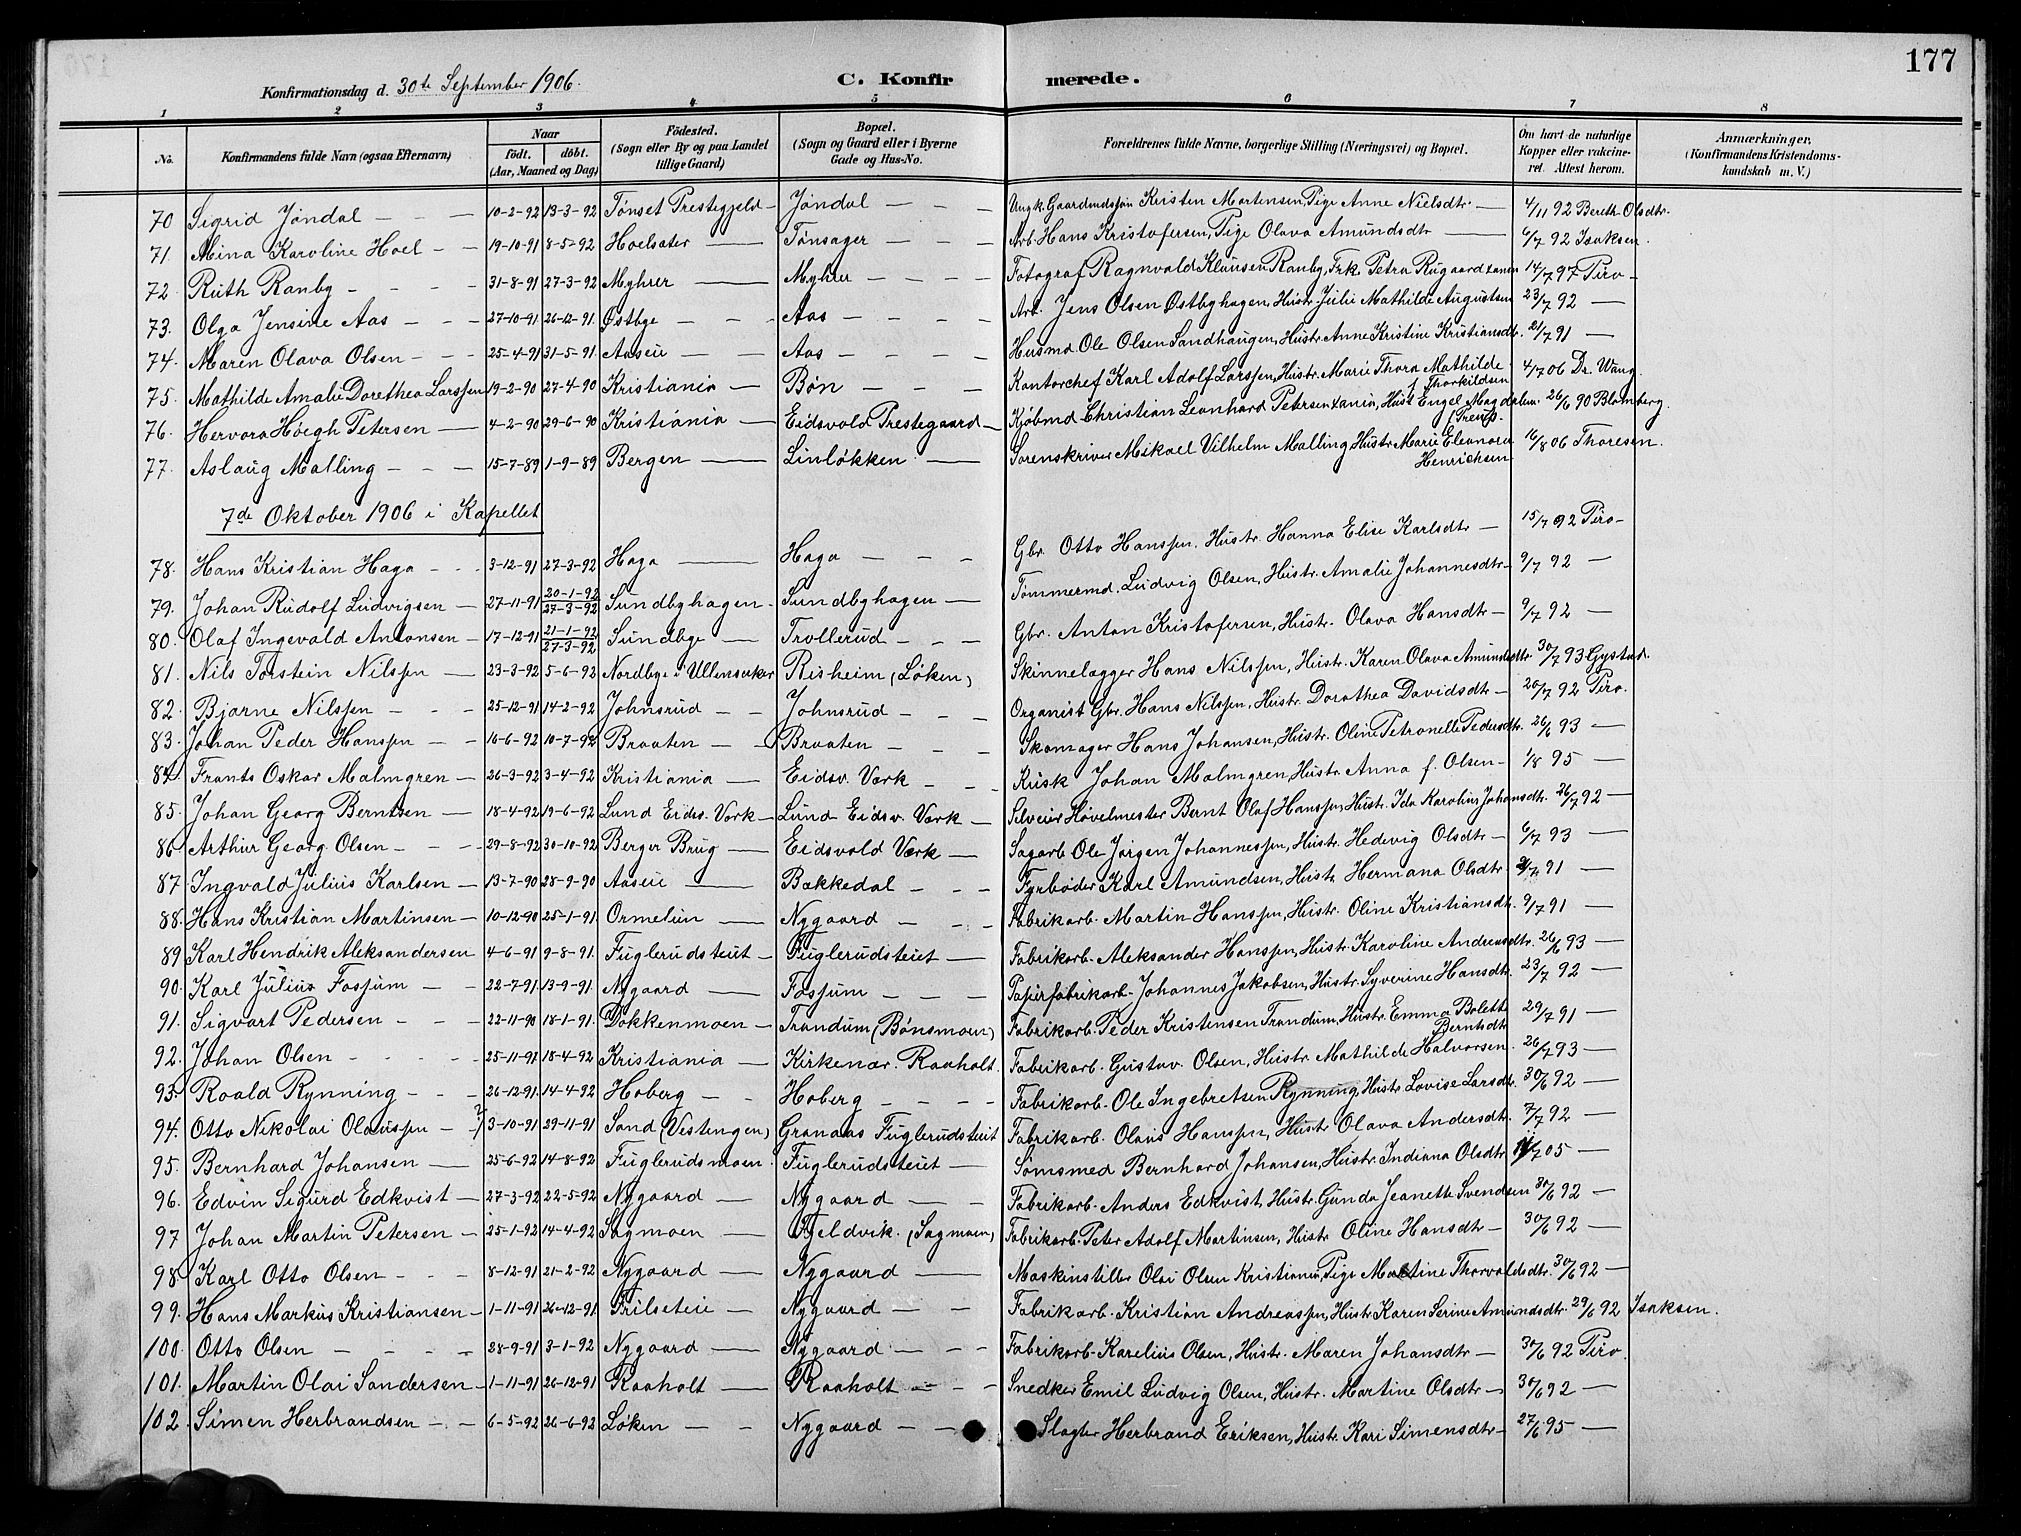 177
Konfirmationsdag d. 30te September 1906. C. Konfirmerede.
1 2 3 4 5 6 7 8
No. Konfirmandens fulde Navn (ogsaa Efternavn) Naar født. døbt. (Aar, Maaned og Dag) Fødested. (Sogn eller By og paa Landet tillige Gaard) Bopæl. (Sogn og Gaard eller i Byerne Gade og Hus-No. Forældrenes fulde Navne, borgerlige Stilling (Næringsvei) og Bopæl. Om havt de naturlige Kopper eller vakcineret. Attest herom. Anmærkninger, (Konfirmandens Kristendomskundskab m. V.)
70 Sigrid Jøndal 10-2-92 13-3-92 Tønset Prestegjeld Jøndal Ungk. Gaardmandssøn Kristen Mortensen, Pige Anne Nielsdtr. 4/11 92 Bereth Olsdtr.
71. Mina Karoline Hoel 19-10-91 8-5-92 Hoelsæter Tønsager Arb. Hans Kristofersen, Pige Olava Amundsdtr 6/7 92 Isaksen.
72. Ruth Ranby 31-8-91 27-3-92 Myhrer Myhrer Fotograf Ragnvald Klausen Ranby, Frk. Petra Rugaard xania 14/7 97 Piro
73. Olga Jensine Aas 27-10-91 26-12-91. Østbye Aas Arb. Jens Olsen Østbyhagen, Hustr. Julie Mathilde Augustsen 23/7 92 —
74. Maren Olava Olsen 25-4-91 31-5-91. Aaseie Aas Husmd. Ole Olsen Sandhaugen, Hustr. Anne Kristine Kristiansdtr. 21/7 91 —
75. Mathilde Amalie Dorethea Larssen 19-2-90 27-4-90 Kristiania Bøn Kontorchef Karl Adolf Larssen, Hustr. Marie Thora Mathilde Thorkildsen 4/7 06 Dr. Wang.
76. Hervora Høegh Petersen 4-2-90 29-6-90 Kristiania Eidsvold Prestegaard Kjøbmd Christian Leonhard Petersen xania, Hust Engel Magdalene 26/6 90 Blomberg.
77. Aslaug Malling 15-7-89 1-9-89 Bergen Linløkken Sorenskriver Mikael Vilhelm Malling, Hustr. Marie Eleanora Henrichsen 16/8 06 Thoresen.
7de Oktober 1906 i Kapellet
78. Hans Kristian Haga 3-12-91 27-3-92 Haga Haga Gbr. Otto Hanssen, Hustr. Hanna Elise Karlsdtr 15/7 92 Piro
79. Johan Rudolf Ludvigsen 27-11-91 20-1-92 27-3-92 Sundbyhagen Sundbyhagen Tømmermd. Ludvig Olsen, Hustr. Amalie Johannesdtr 9/7 92 —
80. Olaf Ingevald Antonsen 17-12-91 21-1-92 27-3-92 Sundbye Trollerud Gbr. Anton Kristofersen, Hustr. Olava Hansdtr 9/7 92 —
81. Nils Torstein Nilssen 23-3-92 5-6-92 Nordbye i Ullensaker Risheim (Løken) Skinnelægger Hans Nilssen, Hustr. Karen Olava Amundsdtr 30/7 93 Gystad.
82. Bjarne Nilssen 25-12-91 14-2-92 Johnsrud Johnsrud Organist Gbr. Hans Nilssen, Hustr. Dorothea Davidsdtr 20/7 92 Piro.
83. Johan Peder Hanssen 16-6-92 10-7-92 Braaten Braaten Skomager Hans Johansen, Hustr. Oline Petronelle Pedersdtr. 26/6 93 —
84. Frants Oskar Malmgren 26-3-92 3-4-92 Kristiania Eidsv. Værk Kusk Johan Malmgren, Hustr. Anna f. Olsen 1/8 95 —
85. Johan Georg Berntsen 18-4-92 19-6-92 Lund Eidsv. Værk Lund Eidsv. Værk Selveier Høvelmester Bernt Olaf Hanssen, Hustr. Ida Karoline Johansdtr. 26/7 92 —
86 Arthur Georg Olsen 29-8-92 30-10-92 Berger Brug Eidsvold Værk Sagarb Ole Jørgen Johannessen, Hustr. Hedevig Olsdtr 6/7 93 —
87 Ingvald Julius Karlsen 13-7-90 28-9-90 Aaseie Bækkedal Fyrbøder Karl Amundsen, Hustr. Hermana Olsdtr 9/7 91 —
88. Hans Kristian Martinsen 10-12-90 25-1-91. Ormelun Nygaard Fabrikarb. Martin Hanssen, Hustr. Oline Kristiansdtr. 9/7 91 —
89 Karl Hendrik Aleksandersen 4-6-91 9-8-91. Fuglerudsteiet Fuglerudsteiet Fabrikarb. Aleksander Hanssen, Hustr. Karoline Andreasdtr. 26/6 93 —
90. Karl Julius Fossum 22-7-91 13-9-91. Nygaard Fossum Papirfabrikarb. Johannes Jakobsen, Hustr. Syverine Hansdtr. 23/7 92 —
91. Sigvart Pedersen 22-11-90 18-1-91. Dokkenmoen Trandum (Bønsmoen) Fabrikarb. Peder Kristensen Trandum, Hustr. Emma Bolette Berntsdtr 29/7 91 —
92. Johan Olsen 25-11-91 18-4-92 Kristiania Kirkenær. Raaholt. Fabrikarb. Gustav. Olsen, Hustr. Mathilde Halvorsen. 26/7 93 —
93. Roald Rynning 26-12-91. 14-4-92 Hoberg Hoberg Fabrikarb. Ole Ingebretsen Rynning, Hustr. Lovise Larsdtr. 30/6 92 —
94. Otto Nikolai Olaussen 3-10-91 29-11-91 Sand (Vestengen) Granaas Fuglerudsteiet Fabrikarb. Olaus Hanssen, Hustr. Olava Andersdtr. 7/7 92 —
95. Bernhard Johansen 25-6-92 14-8-92 Fuglerudsmoen. Fuglerudsteiet Sømsmed Bernhard Johansen, Hustr. Indiana Olsdtr. 05 —
96. Edvin Sigurd Edkvist 27-3-92 22-5-92 Nygaard Nygaard Fabrikarb. Anders Edkvist, Hustr. Gunda Jeanette Svendsen 30/6 92 —
97 Johan Martin Petersen 25-1-92 14-4-92 Sagmoen Fjeldvik. (Sagmoen) Fabrikarb. Peter Adolf Martinsen, Hustr Oline Hansdtr 30/6 92 —
98. Karl Otto Olsen 8-12-91 21-2-92 Nygaard Nygaard Maskinstiller Olai Olsen Kristiania, Pige Martine Thorvaldsdtr. 30/6 92 —
99. Hans Markus Kristiansen 1-11-91 26-12-91. Frilseteie Nygaard Fabrikarb. Kristian Andreassen, Hustr Karen Serine Amundsdtr. 29/6 92 Isaksen.
100. Otto Olsen 28-9-91 3-1-92 Nygaard Nygaard Fabrikarb. Karelius Olsen, Hustr. Maren Johansdtr 30/6 92 Piro.
101. Martin Olai Sandersen 1-11-91 26-12-91 Raaholt Raaholt Snedker Emil Ludvig Olsen, Hustr. Martine Olsdtr 30/6 92 —
102. Simen Herbrandsen 6-5-92 26-6-92 Løken Nygaard Slagter Herbrand Eriksen, Hustr. Kari Simensdtr 27/6 95 —